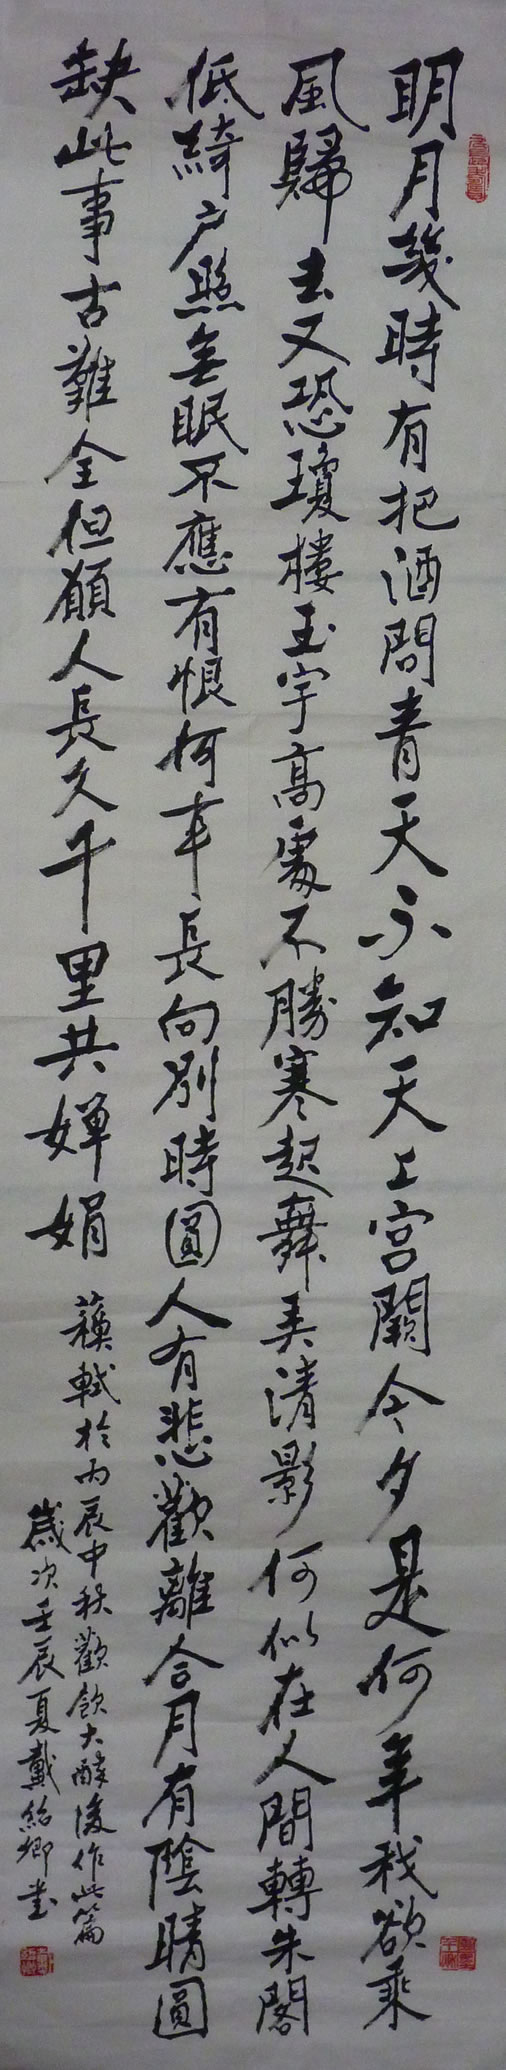 明月幾時有把酒問青天不知天上宮闕今夕是何年我欲乘
風歸去又恐瓊樓玉宇高處不勝寒起舞弄清影何似在人間轉朱閣
低綺户照無眠不應有恨何事長向別時圓人有悲歡離合月有陰晴圓
缺此事古難全但願人長久千里共嬋娟
蘇軾於丙辰中秋歡飲大醉後作此篇
歲次壬辰夏戴紹卿書